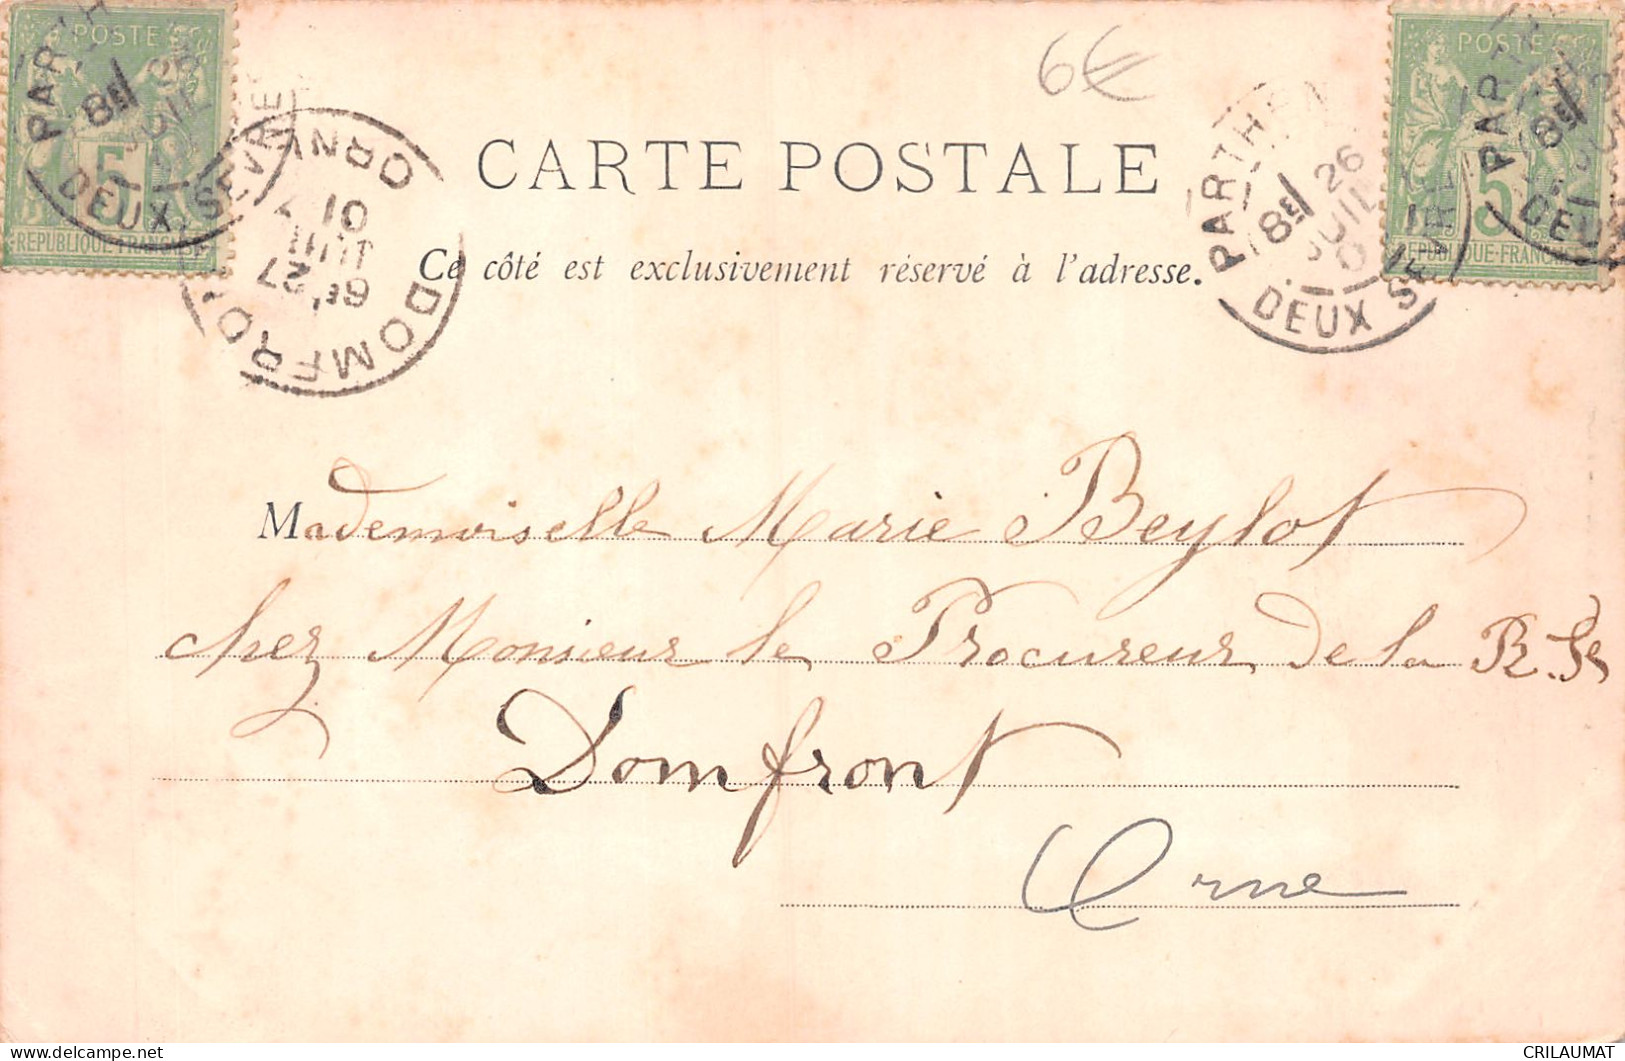 POSTE
5
REPUBLIQUE FRANÇAISE
PARTH
8E
DEUX-SEVRE
DOMFRO
ORNE
6E 27
JUIL
01
6€
CARTE POSTALE
Ce côté est exclusivement réservé à l'adresse.
PARTHEN
8E 26
JUIL
0
DEUX SEVRE
POSTE
5
REPUBLIQUE-FRANÇ
PARTH
8E
DEUX
Mademoiselle Marie Beylot
chez Monsieur le Procureur de la R.
Domfront
Orne
CRILAUMAT